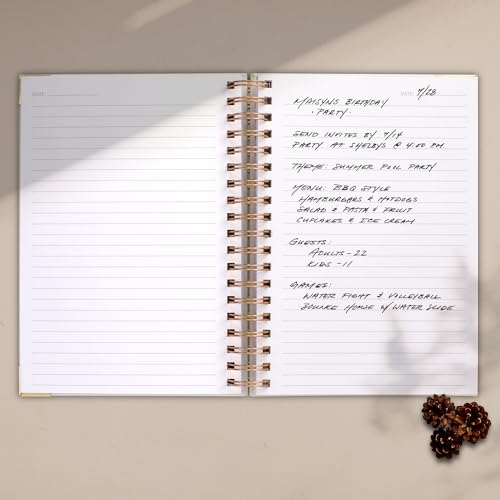 DATE:
DATE: 7/28
MAISYN'S BIRTHDAY
· PARTY ·
SEND INVITES BY 7/14
PARTY AT SHELBYS @ 4:00 PM
THEME: SUMMER POOL PARTY
MENU: BBQ STYLE
HAMBURGERS & HOTDOGS
SALAD & PASTA & FRUIT
CUPCAKES & ICE CREAM
GUESTS:
ADULTS - 22
KIDS - 11
GAMES:
WATER FIGHT & VOLLEYBALL
BOUNCE HOUSE W/ WATER SLIDE